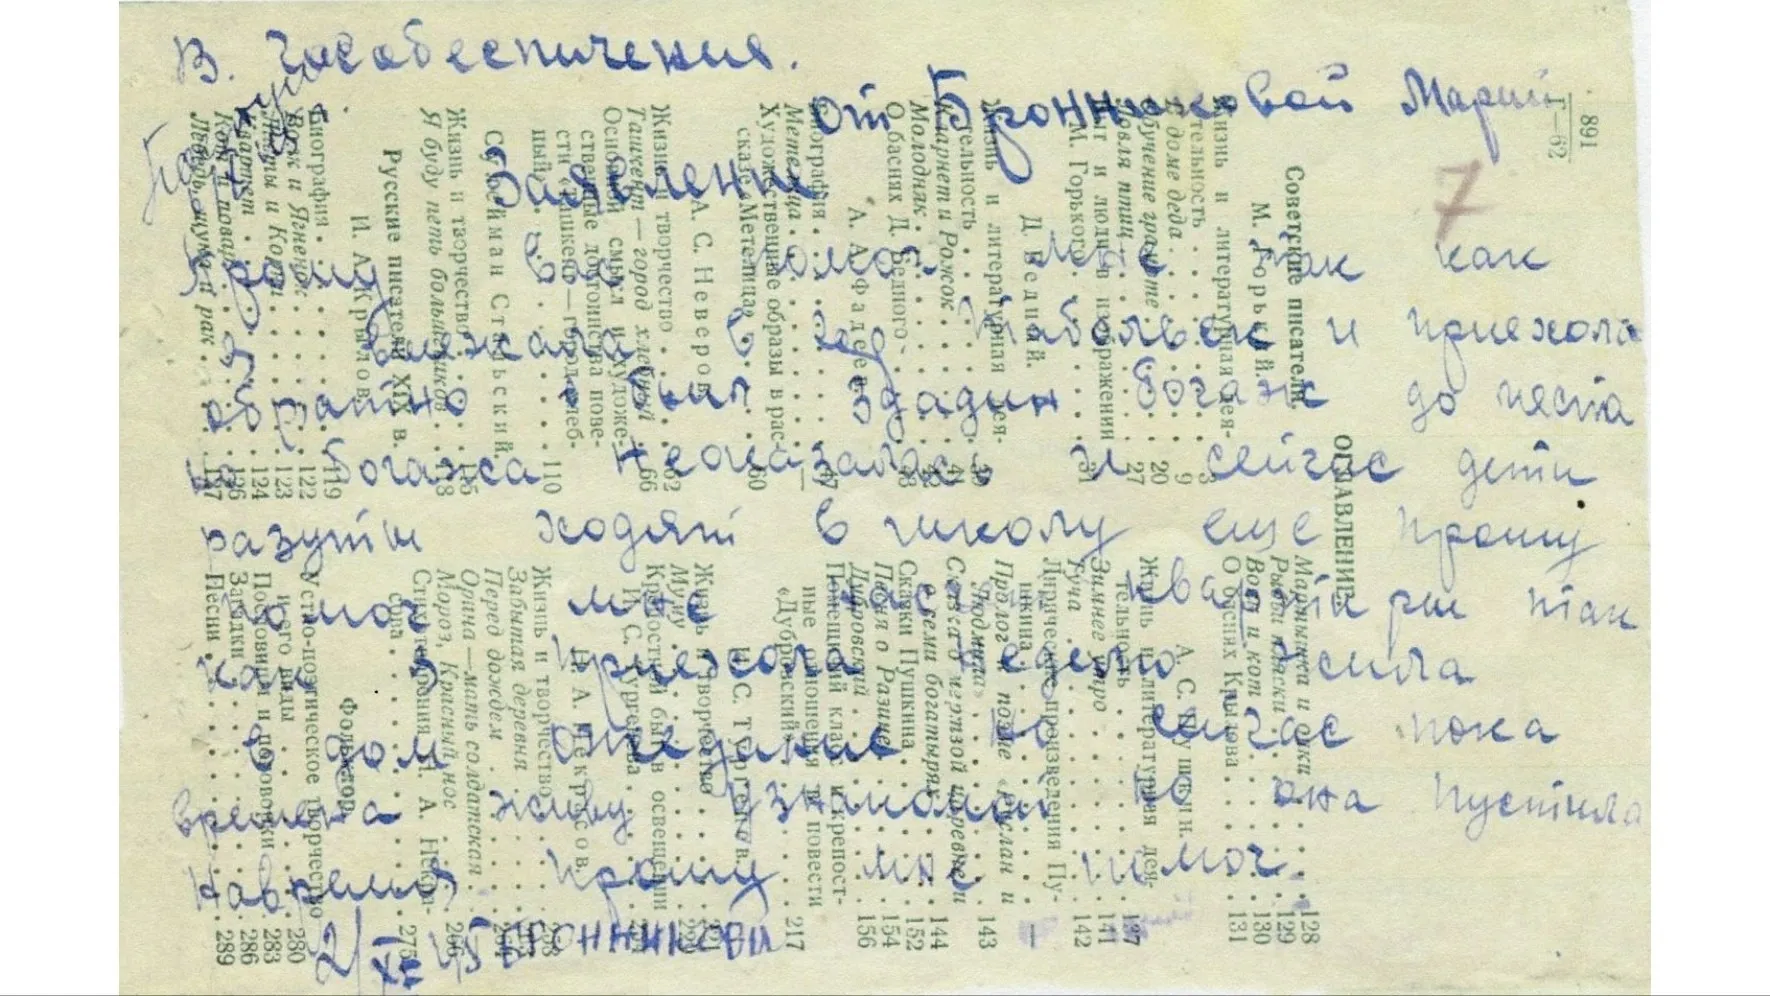 В. Гособеспичения.
от Бронниковой Марий
7
Заявление
Прошу Вас помоч мне так как
я выежала в Тобольск и приехала
обратно и был здадин богаж до места
но богажа неоказалос и сейчас дети
разутыи ходят в школу еще прошу
помоч мне квартиры так
как я приехала жила
в дом но сейчас пока
времена живу узнамой но она пустила
навремя прошу мне помоч.
2/XI 45 Бронникова
891
Г—62
ОГЛАВЛЕНИЕ
Советские писатели
М. Горький.
Жизнь и литературная дея-
тельность
В доме деда 9
Обучение грамоте 20
Ловля птиц 27
Быт и люди в изображении
М. Горького 31
Д. Бедный.
Жизнь и литературная дея-
тельность
Кларнет и Рожок
Молодняк
О баснях Д. Бедного
А. А. Фадеев
Биография
Метелица
Художественные образы в рас-
сказе «Метелица» 60
А. С. Неверов
Жизнь и творчество 62
Ташкент — город хлебный 66
Основной смысл и художе-
ственные достоинства пове-
сти «Ташкент — город хлеб-
ный» 110
Сулейман Стальский.
Жизнь и творчество 115
Я буду петь большевиков 118
Русские писатели XIX в.
И. А. Крылов.
Биография 119
Волк и Ягненок 122
123
124
Квартет 126
Кот и повар
Лебедь, щука и рак
Мартышка и очки 128
Рыбьи пляски 129
Волк и кот 130
О баснях Крылова 131
А. С. Пушкин.
Жизнь и литературная дея-
тельность 137
Зимнее утро 141
Туча 142
Лирические произведения Пу-
шкина —
Пролог к поэме «Руслан и
Людмила» 143
Сказка о мертвой царевне и
о семи богатырях 144
Сказки Пушкина 152
Песня о Разине 154
Дубровский 156
Помещичий класс и крепост-
ные отношения в повести
«Дубровский» 217
И. С. Тургенев.
Жизнь и творчество
Муму
Крепостной быт в освещении
И. С. Тургенева
Н. А. Некрасов.
Жизнь и творчество
Забытая деревня
Перед дождем
Орина — мать солдатская 266
Мороз, Красный нос
Стихотворения Н. А. Некра-
сова 275
Фольклор
Устно-поэтическое творчество
и его виды 280
Пословицы и поговорки 283
Загадки 286
Песни 289